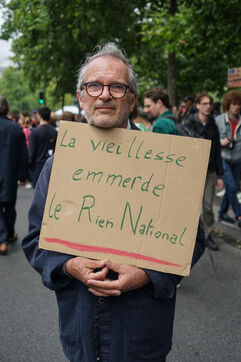 La vieillesse
emmerde
le Rien National